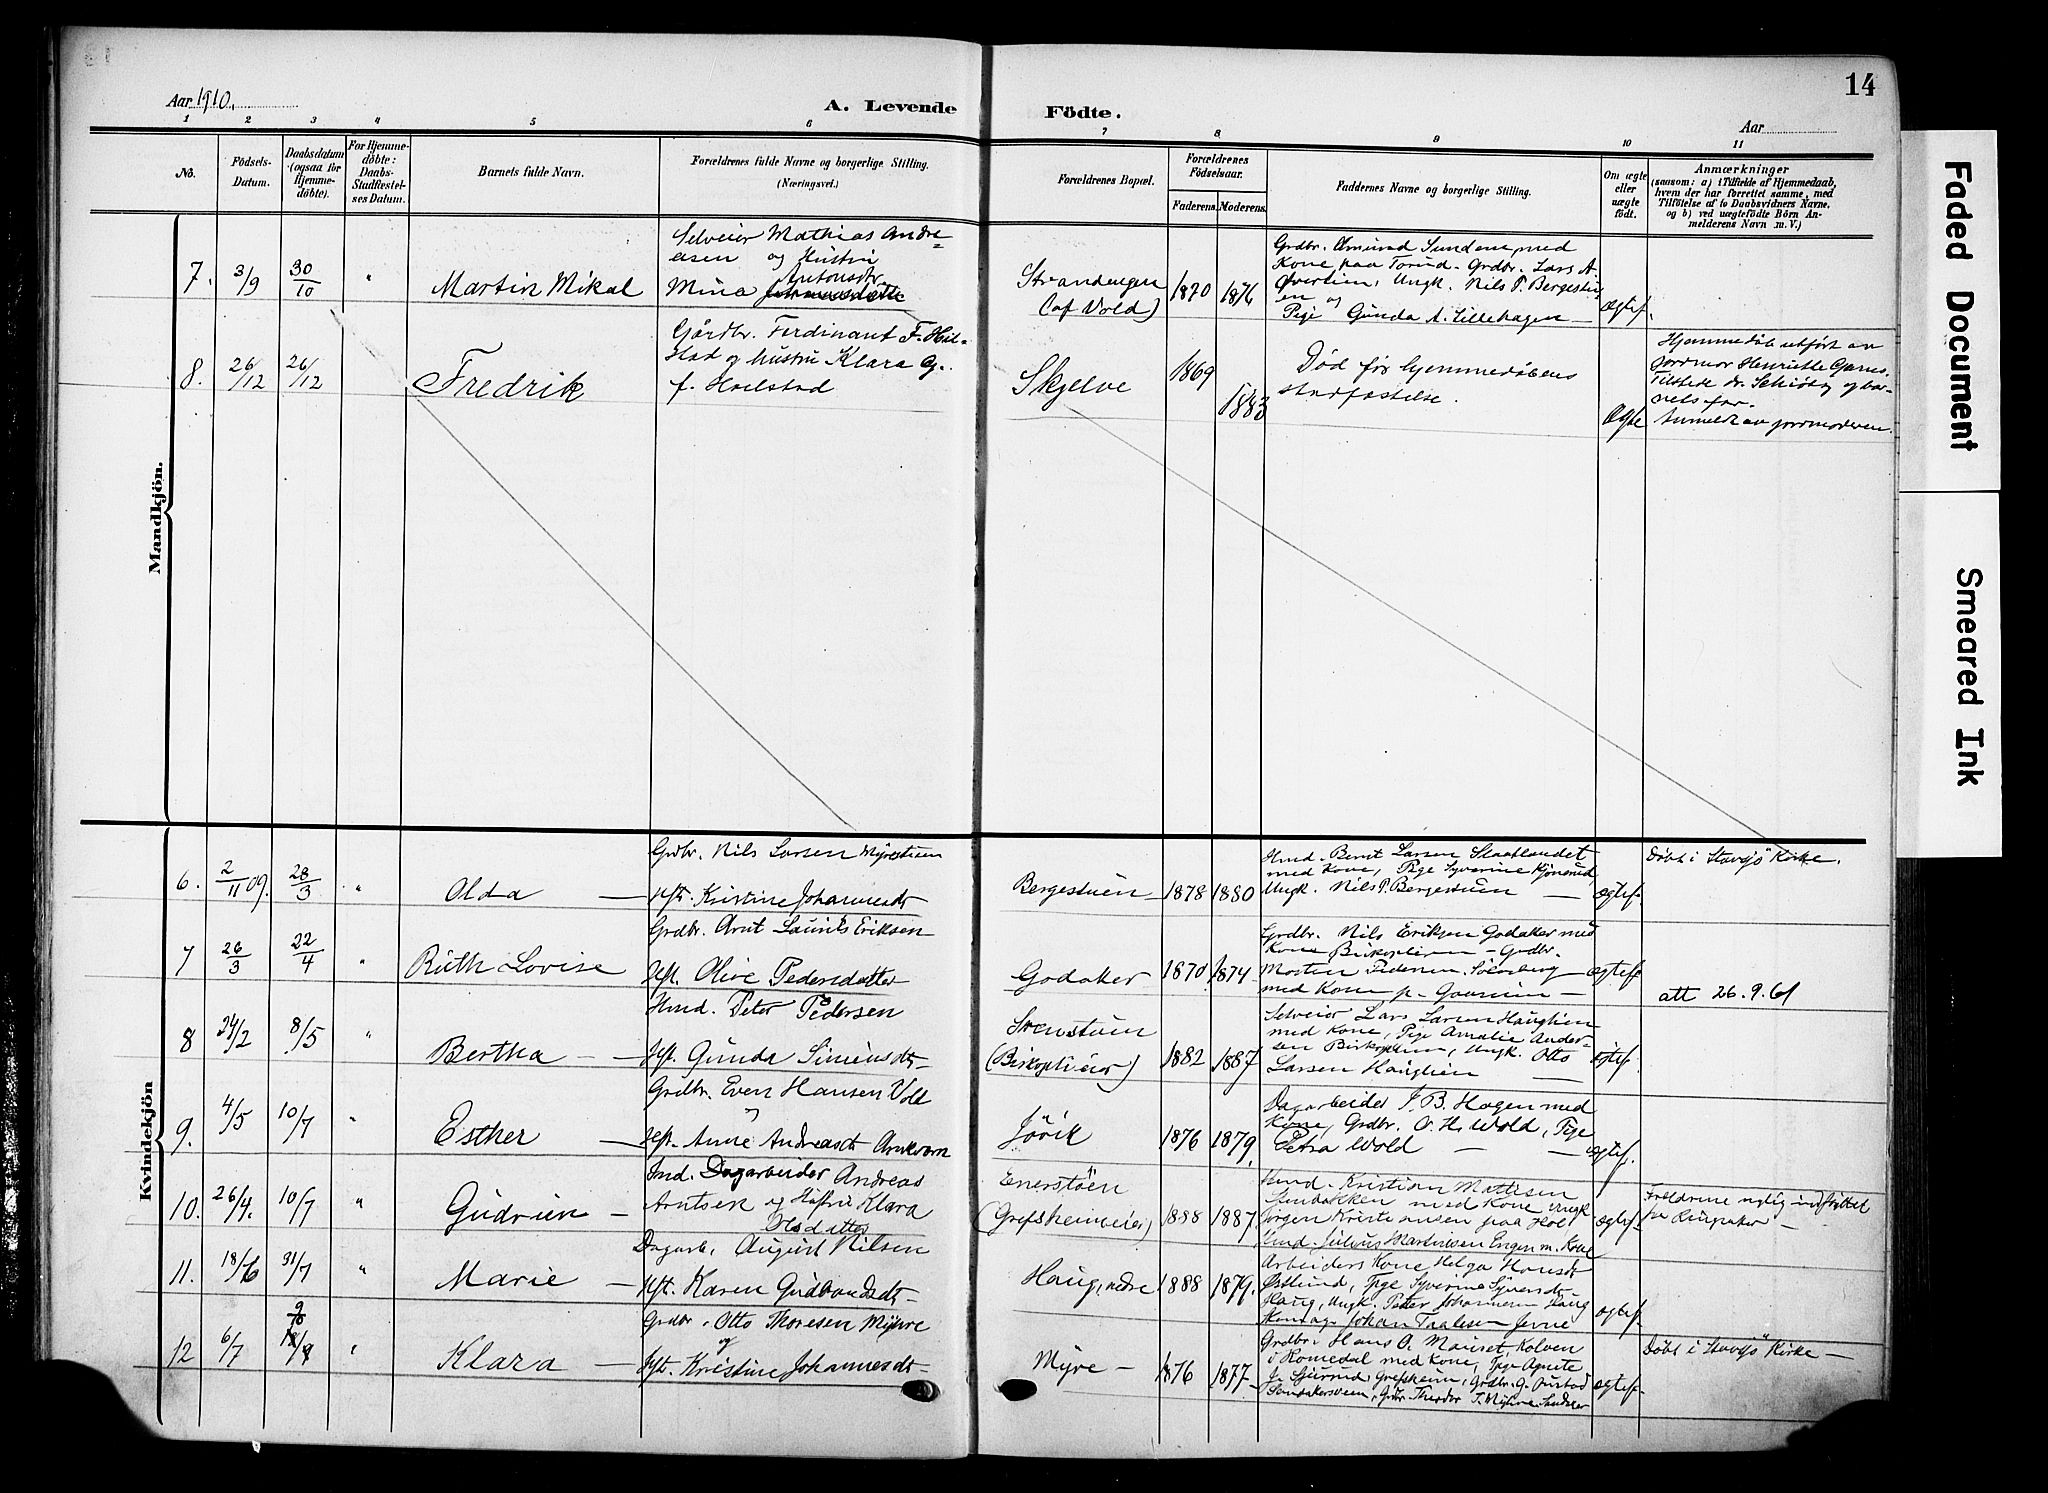 14
Aar 1910.
A. Levende Födte.
Aar
1 2 3 4 5 6 7 8 9 10 11
No.
Födsels-
Datum.
Daabsdatum
(ogsaa for
Hjemme-
døbte).
For Hjemme-
døbte:
Daabs-
Stadfæstel-
ses Datum.
Barnets fulde Navn.
Forældrenes fulde Navne og borgerlige Stilling.
(Næringsvei.)
Forældrenes Bopæl.
Forældrenes
Födselsaar.
Faderens. Moderens.
Faddernes Navne og borgerlige Stilling.
Om ægte
eller
uægte
födt.
Anmærkninger
(saasom: a) i Tilfælde af Hjemmedaab,
hvem der har forrettet samme, med
Tilføielse af to Daabsvidners Navne,
og b) ved uægtefödte Börn An-
melderens Navn m. V.)
Mandkjön.
7. 3/9 30/10 "
Martin Mikal
Selveier Mathias Andre-
asen og Hustru
Antonsdtr.
Mina
Strandengen
(af Vold)
1870 1876
Grdbr. Amund Sunden med
Kone paa Torud. Grdbr. Lars A.
Øverlien, Ungk. Nils P. Bergestu-
en og
Pige Gunda A. Lillehagen —
Ægtef.
8. 26/12 26/12
Fredrik
Gårdbr. Ferdinant F. Hol-
stad og hustru Klara G.
f. Hoelstad
Skjelve
1869
1883
Død før hjemmedåbens
stadfæstelse.
Ægte
Hjemmedåb utført av
jordmor Henriette Garnes.
Tilstede dr. Schiötz og bar-
nets far.
Anmeldt av jordmoderen.
Kvindekjön
6. 2/11 09. 28/3 "
Olda —
Grdbr. Nils Larsen Myrestuen
Hft. Kristine Johannesdt
Bergestuen
1878 1880
Hmd. Bernt Larsen Staallandet
med Kone, Pige Syverine Kjönerud,
Ungk. Nils P. Bergestuen —
ægtef.
Døbt i Stavsjö Kirke.
7 26/3 22/4 "
Ruth Lovise
Grdbr. Arnt Laurits Eriksen
Hft. Olive Pedersdatter
Godaker
1870 1874
Grdbr. Nils Eriksen Godaker med
Kone — Grdbr.
Morten Pedersen Solberg —
med Kone p.
ægtef
att 26.9.61
8 24/2 8/5 "
Bertha —
Hmd. Peter Pedersen
Hft. Gunda Simensdt
Stenstuen
(Birkoplieier)
1882 1887
Selveier Lars Larsen Hauglien
med Kone, Pige Amalie Ander-
sen Birkoplien, Ungk. Otto
Larsen Hauglien —
ægtef.
9. 4/5 10/7 "
Esther —
Grdbr. Even Hansen Vold
Hft. Anne Andreasdt Arnkværn
Jövik
1876 1879.
Dagarbeider J. B. Hagen med
Kone, Grdbr. O. H. Wold, Pige
Petra Wold —
ægtef.
10. 26/4. 10/7 "
Gudrun —
Ind. Dagarbeider Andreas
Arntsen og Hustru Klara
Olsdatter
Enerstuen
(Grefsheimeier)
1888 1887
Hmd. Kristian Mathisen
Stenbakken med Kone Ungk
Jørgen Kristiansen paa Hol,
Hmd. Julius Martinsen Engen m. Kone
ægtef.
Foreldrene nylig indflyttet
fra Ringsaker —
11. 18/6 31/7 "
Marie —
Dagarb. August Nilsen
Hft. Karen Gudbrandsdt
Haug, nedre
1888 1879.
Arbeiders Kone Helga Hansdt
Østlund, Pige Syverine Sjuersdt
Haug, Ungk. Peter Johannesen Haug
Johan Paalsen Jevne
ægtef.
12 6/7 9/10 "
Klara —
Grdbr. Otto Thoresen Myhre
og
Hft. Kristine Johannesdt
Myre —
1876 1877
Grdbr. Hans O. Mauset, Kolven
i Romedal med Kone, Pige Agnete
J. Sjurud, Grefsheim, Grdbr. G. Austad
Grdbr. Theodor T. Myhre
ægtef.
Døbt i Stavsjö Kirke —
Faded Document
Smeared Ink